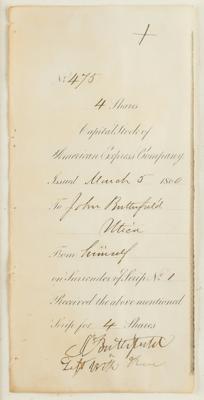 No. 475
4 Shares
Capital Stock of
American Express Company
Issued March 5 1860
To John Butterfield
Utica
From himself
on Surrender of Scrip No. 1
Received the above mentioned
Scrip for 4 Shares
Butterfield
Left with